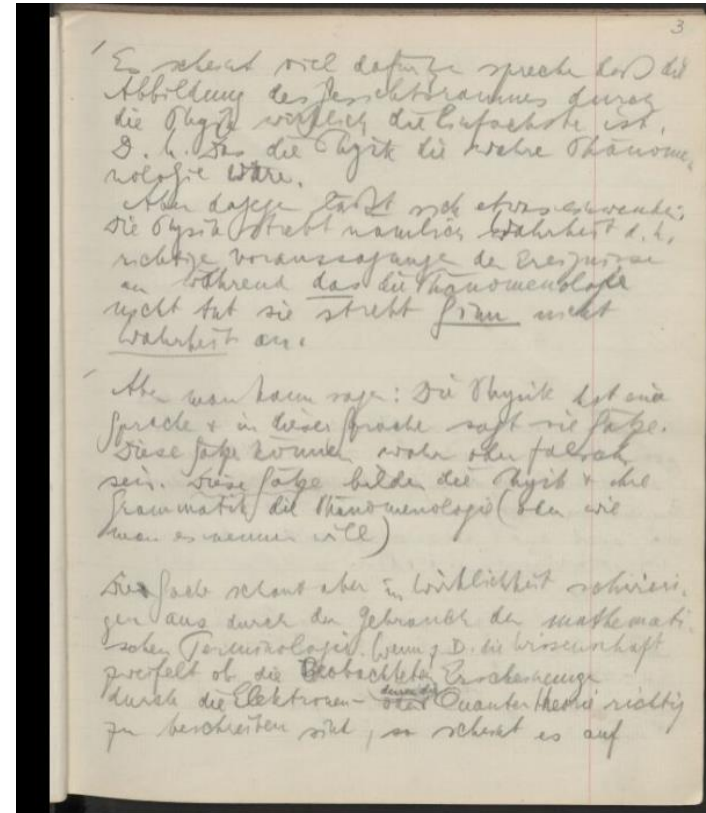 3
Es scheint viel dafür zu sprechen daß die
Abbildung des Gesichtsraumes durch
die Physik wirklich die einfachste ist.
D. h. das die Physik die wahre Phänome-
nologie wäre.
Aber dagegen läßt sich etwas einwenden:
Die Physik strebt nämlich Wahrheit d. h.
richtige Voraussagungen der Ereignisse
an während das die Phänomenologie
nicht tut sie strebt Sinn nicht
Wahrheit an.
Aber man kann sagen: Die Physik hat eine
Sprache & in dieser Sprache sagt sie Sätze.
Diese Sätze können wahr oder falsch
sein. Diese Sätze bilden die Physik & ihre
Grammatik die Phänomenologie (oder wie
man es nennen will)
Die Sache schaut aber in Wirklichkeit schwieri-
ger aus durch den Gebrauch der mathemati-
schen Terminologie. Wenn z. B. die Wissenschaft
zweifelt ob die beobachteten Erscheinungen
durch die Elektronen- oder durch die Quantentheorie richtig
zu beschreiben sind, so scheint es auf